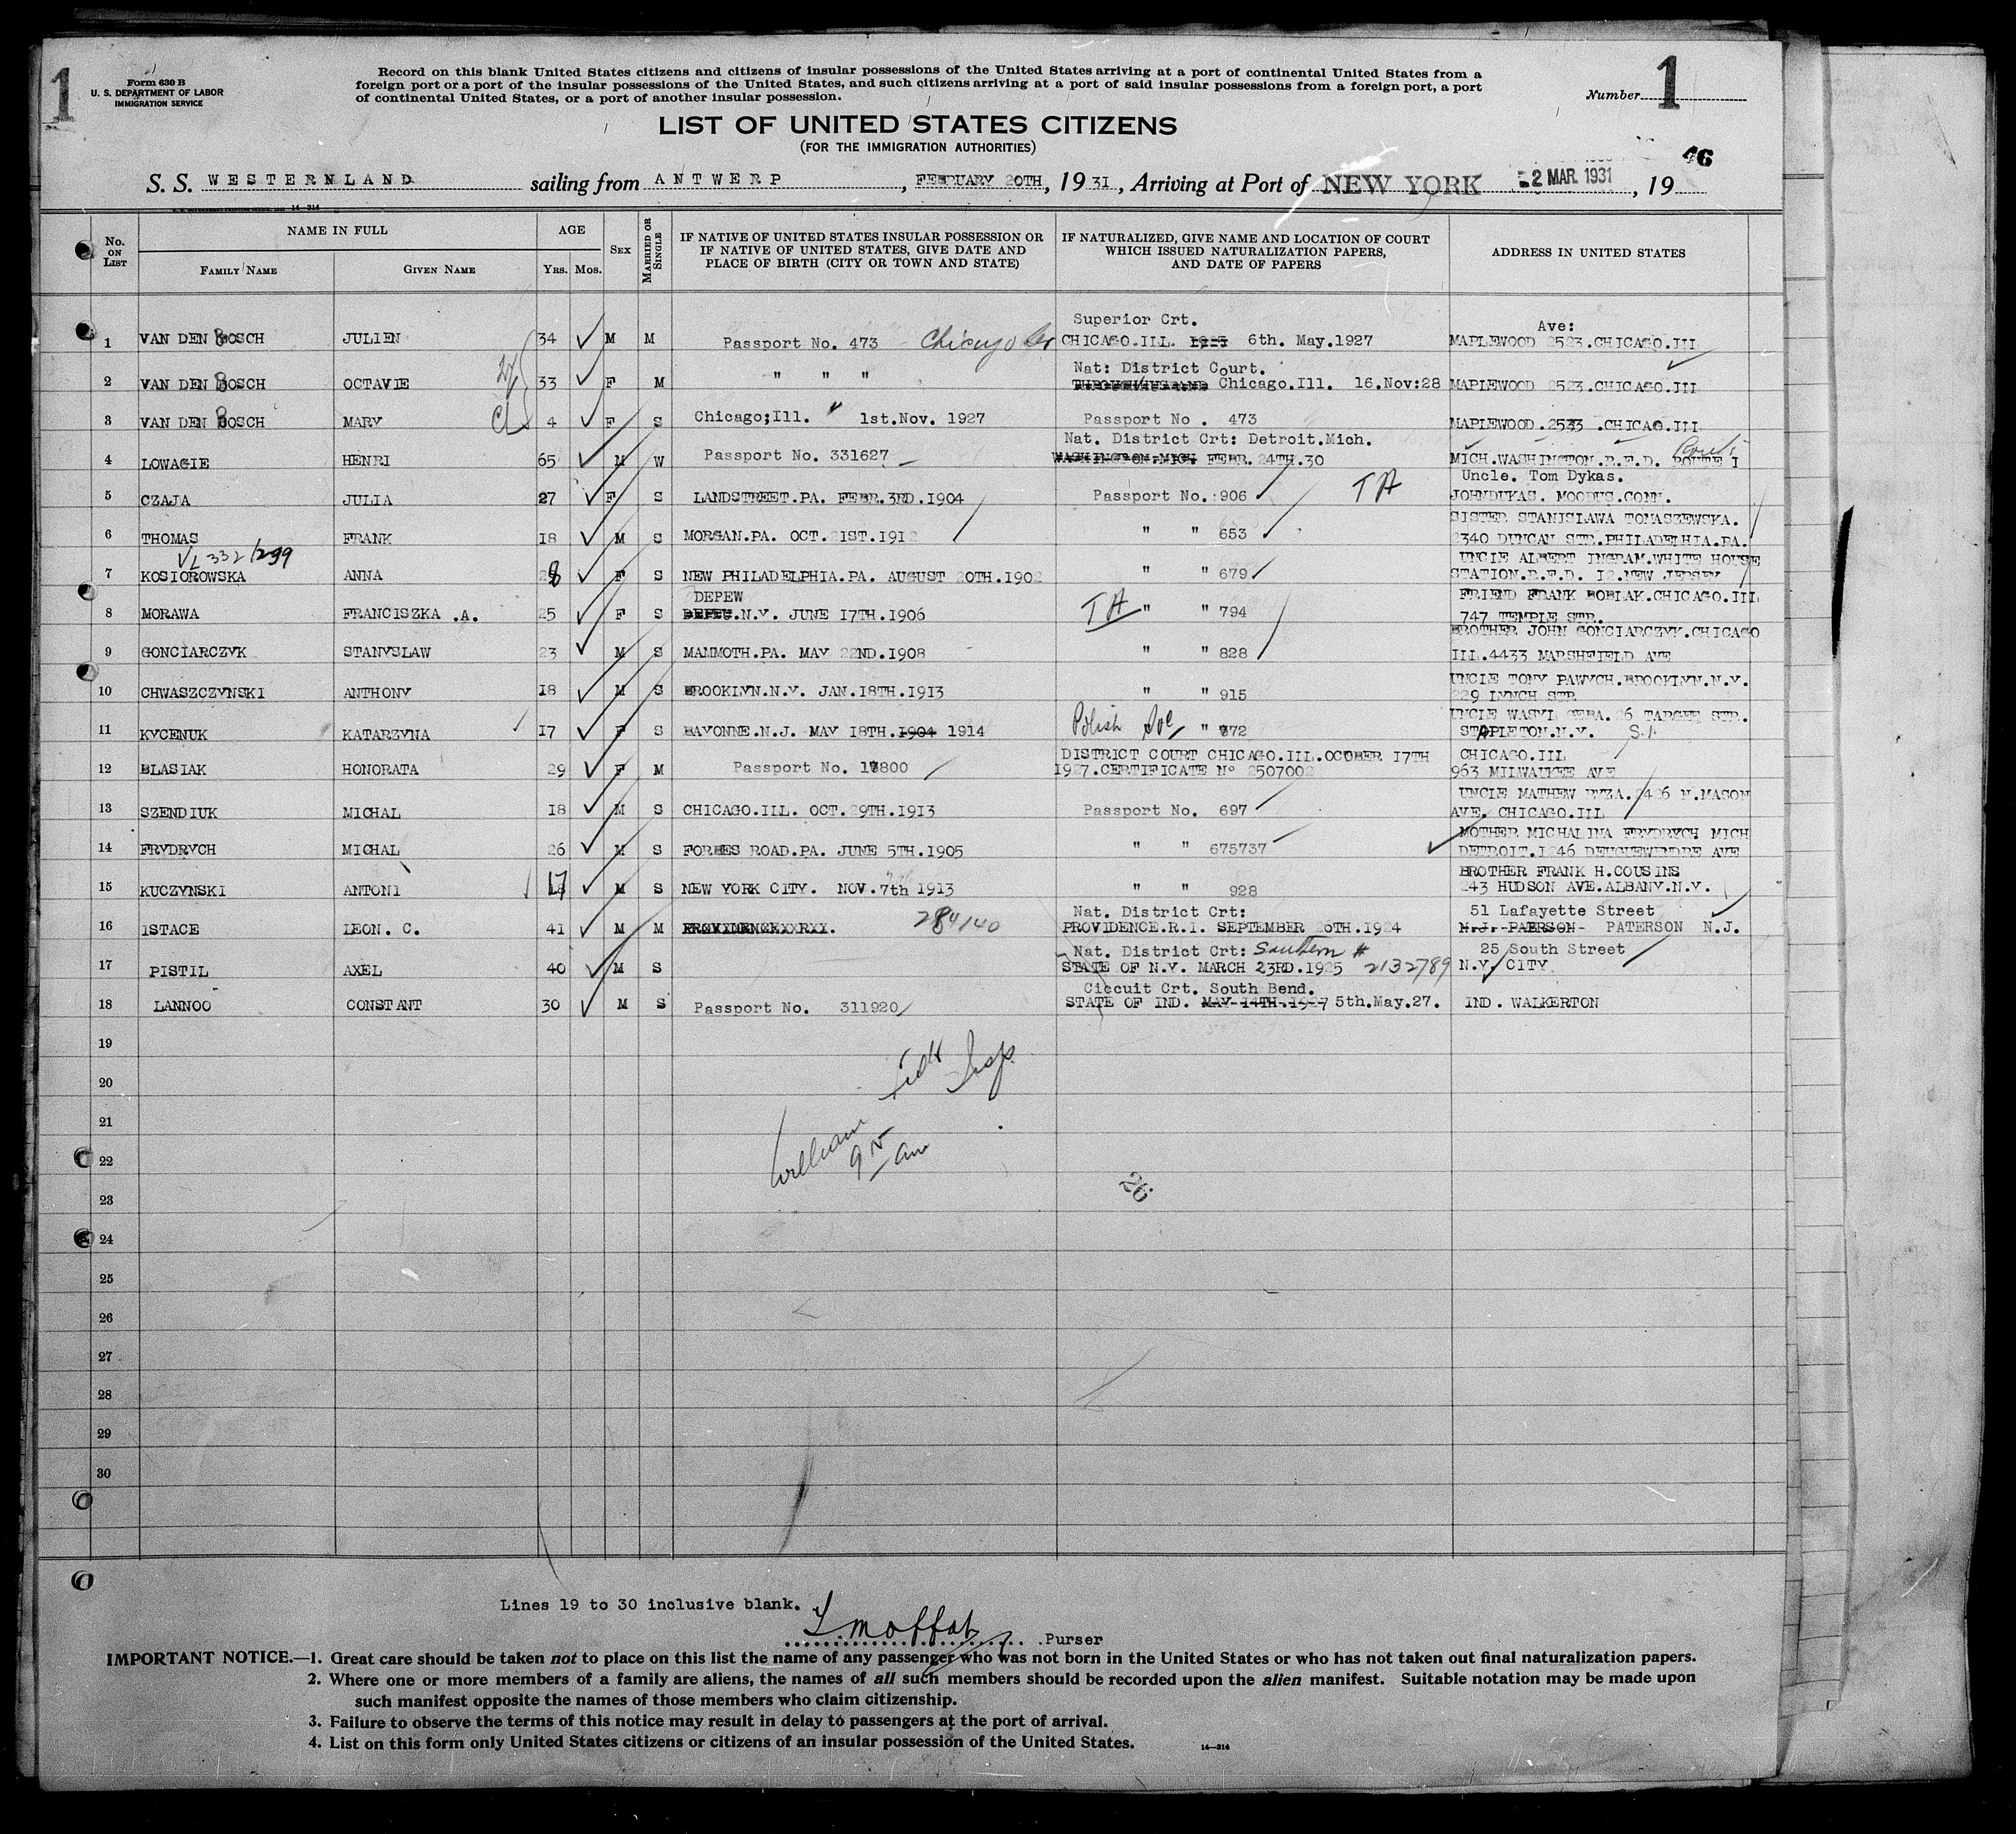 1
Form 630 B
U. S. DEPARTMENT OF LABOR
IMMIGRATION SERVICE
Record on this blank United States citizens and citizens of insular possessions of the United States arriving at a port of continental United States from a
foreign port or a port of the insular possessions of the United States, and such citizens arriving at a port of said insular possessions from a foreign port, a port
of continental United States, or a port of another insular possession.
Number 1
LIST OF UNITED STATES CITIZENS
(FOR THE IMMIGRATION AUTHORITIES)
46
S. S. WESTERNLAND sailing from ANTWERP, FEBRUARY 20TH, 1931, Arriving at Port of NEW YORK 2 MAR. 1931, 19
14-214
No. ON LIST
NAME IN FULL
FAMILY NAME
GIVEN NAME
AGE
YRS. MOS.
SEX
MARRIED OR SINGLE
IF NATIVE OF UNITED STATES INSULAR POSSESSION OR
IF NATIVE OF UNITED STATES, GIVE DATE AND
PLACE OF BIRTH (CITY OR TOWN AND STATE)
IF NATURALIZED, GIVE NAME AND LOCATION OF COURT
WHICH ISSUED NATURALIZATION PAPERS,
AND DATE OF PAPERS
ADDRESS IN UNITED STATES
Superior Crt. Ave:
1 VAN DEN BOSCH JULIEN 34 M M Passport No. 473 Chicago CHICAGO.ILL. 6th. May.1927 MAPLEWOOD 2523.CHICAGO.III
Nat: District Court.
2 VAN DEN BOSCH OCTAVIE 33 F M " " " Chicago.Ill. 16.Nov:28 MAPLEWOOD 2523.CHICAGO.III
3 VAN DEN BOSCH MARY 4 F S Chicago;Ill. 1st.Nov. 1927 Passport No . 473 MAPLEWOOD.2523 .CHICAG.III
Nat. District Crt: Detroit.Mich.
4 LOWAGIE HENRI 65 M W Passport No. 331627 WASHINGTON.MICH FEBR.24TH.30 MICH.WASHINGTON.R.F.D. ROUTE I
Uncle. Tom Dykas.
5 CZAJA JULIA 27 F S LANDSTREET.PA. FEBR.3RD.1904 Passport No. 906 TA JOHNDUKAS. MOODUS.CONN.
SISTER STANISLAWA TOMASZEWSKA.
6 THOMAS FRANK 18 M S MORGAN.PA. OCT.21ST.1912 " " 653 2340 DUNCAN STR.PHILADELHIA.PA.
VL 332/299
UNCLE ALBERT INGRAM.WHITE HOUSE
7 KOSIOROWSKA ANNA 28 F S NEW PHILADELPHIA.PA. AUGUST 20TH.1902 " " 679 STATION.R.F.D. I2.NEW JERSEY
DEPEW FRIEND FRANK BOBLAK.CHICAGO.III
8 MORAWA FRANCISZKA .A. 25 F S DEPEU.N.Y. JUNE 17TH.1906 TA " " 794 747 TEMPLE STR.
BROTHER JOHN GONCIARCZYK.CHICAGO
9 GONCIARCZYK STANYSLAW 23 M S MAMMOTH.PA. MAY 22ND.1908 " " 828 ILL.4433 MARSHFIELD AVE
UNCLE TONY PAWYCH.BROOKLYN.N.Y.
10 CHWASZCZYNSKI ANTHONY 18 M S BROOKLYN.N.Y. JAN.18TH.1913 " " 915 229 LYNCH STR
UNCLE WASYL CEBA.26 TARGEE STR.
11 KYCENUK KATARZYNA 17 F S BAYONNE.N.J. MAY 18TH.1904 1914 Polish " 772 STAPLETON.N.Y. S.I
DISTRICT COURT CHICAGO.ILL.OCOBER 17TH CHICAGO.III
12 BLASIAK HONORATA 29 F M Passport No. 17800 1927.CERTIFICATE No 2507002 963 MILWAUKEE AVE
UNCLE MATHEW DYZA.2426 N.MASON
13 SZENDIUK MICHAL 18 M S CHICAGO.ILL. OCT.29TH.1913 Passport No. 697 AVE. CHICAGO.III
MOTHER MICHALINA FRYDRYCH MICH
14 FRYDRYCH MICHAL 26 M S FORBES ROAD.PA. JUNE 5TH.1905 " " 675737 DETROIT.1246 DEUGUEWENDRE AVE
BROTHER FRANK H.COUSINS
15 KUCZYNSKI ANTONI 17 M S NEW YORK CITY. NOV.7th 1913 " " 928 243 HUDSON AVE.ALBANY.N.Y.
Nat. District Crt: 51 Lafayette Street
16 ISTACE LEON. C. 41 M M 284140 PROVIDENCE.R.I. SEPTEMBER 26TH.1924 N.J. PAERSON PATERSON N.J.
Nat. District Crt: Southern # 25 South Street
17 PISTIL AXEL 40 M S STATE OF N.Y. MARCH 23RD.1925 2132789 N.Y. CITY
Ciccuit Crt. South Bend.
18 LANNOO CONSTANT 30 M S Passport No. 311920 STATE OF IND. MAY 14TH.1927 5th.May.27. IND. WALKERTON
19
20
21
William
9 15 am
22
26
23
24
25
26
27
28
29
30
Lines 19 to 30 inclusive blank.
Moffat Purser
IMPORTANT NOTICE.—1. Great care should be taken not to place on this list the name of any passenger who was not born in the United States or who has not taken out final naturalization papers.
2. Where one or more members of a family are aliens, the names of all such members should be recorded upon the alien manifest. Suitable notation may be made upon
such manifest opposite the names of those members who claim citizenship.
3. Failure to observe the terms of this notice may result in delay to passengers at the port of arrival.
4. List on this form only United States citizens or citizens of an insular possession of the United States.
14—214